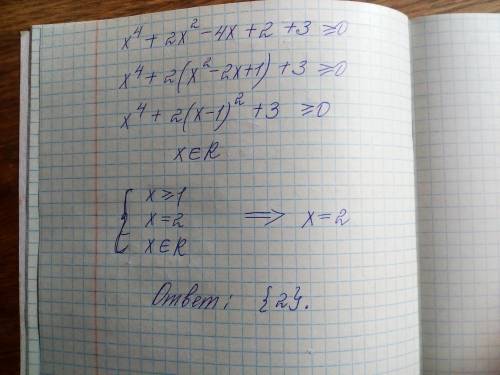 x⁴ + 2x² - 4x + 2 + 3 ≥ 0
x⁴ + 2(x² - 2x + 1) + 3 ≥ 0
x⁴ + 2(x - 1)² + 3 ≥ 0
x ∈ R
{ x ≥ 1
x = 2 ⟹ x = 2
x ∈ R
Ответ: {2}.